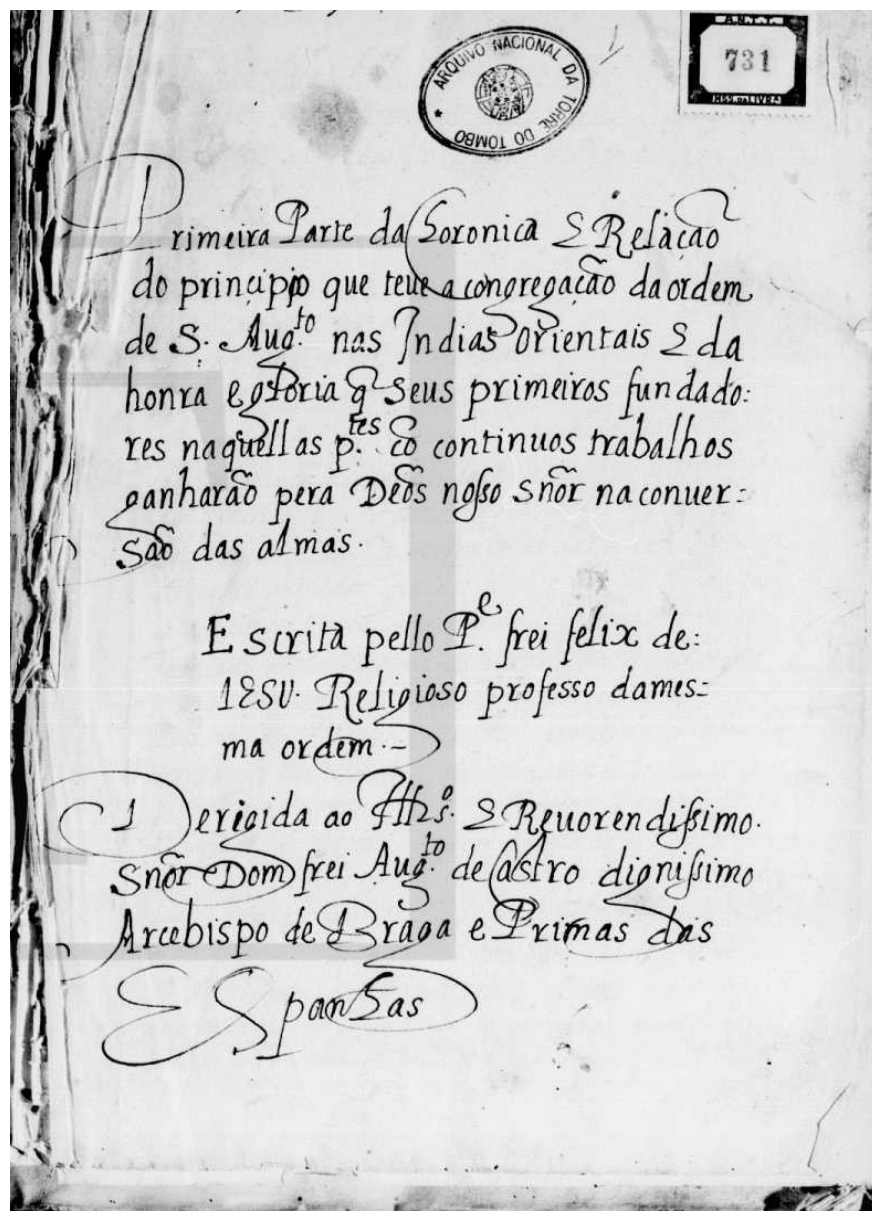 ARQUIVO NACIONAL DA TORRE DO TOMBO
A.N.T.T.
731
MSS. DA LIVR.
Primeira Parte da Coronica E Relação
do principio que teue a congregação da ordem
de S. Aug.to nas Indias Orientais E da
honra e gloria q̃ seus primeiros fundado:
res naquellas p.tes cõ continuos trabalhos
ganharão pera Deõs nosso Snõr na conuer:
são das almas.
Escrita pello P.e frei felix de:
IESV. Religioso professo da mes=
ma ordem.-
Derigida ao Illr.o E Reuorendissimo.
Snõr Dom frei Aug.to de Castro dignissimo
Arcebispo de Braga e Primas das
ESpanhas